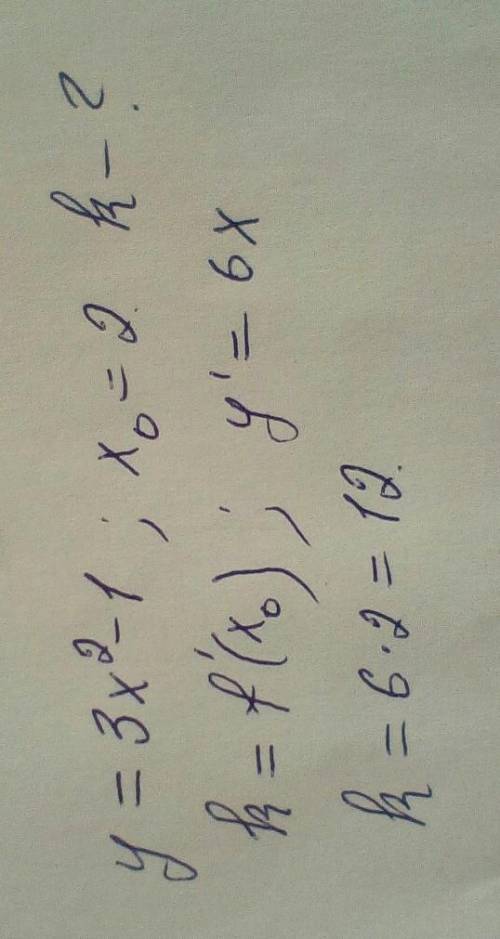 y = 3x² - 1 ; x₀ = 2 k - ?
k = f'(x₀) ; y' = 6x
k = 6·2 = 12.